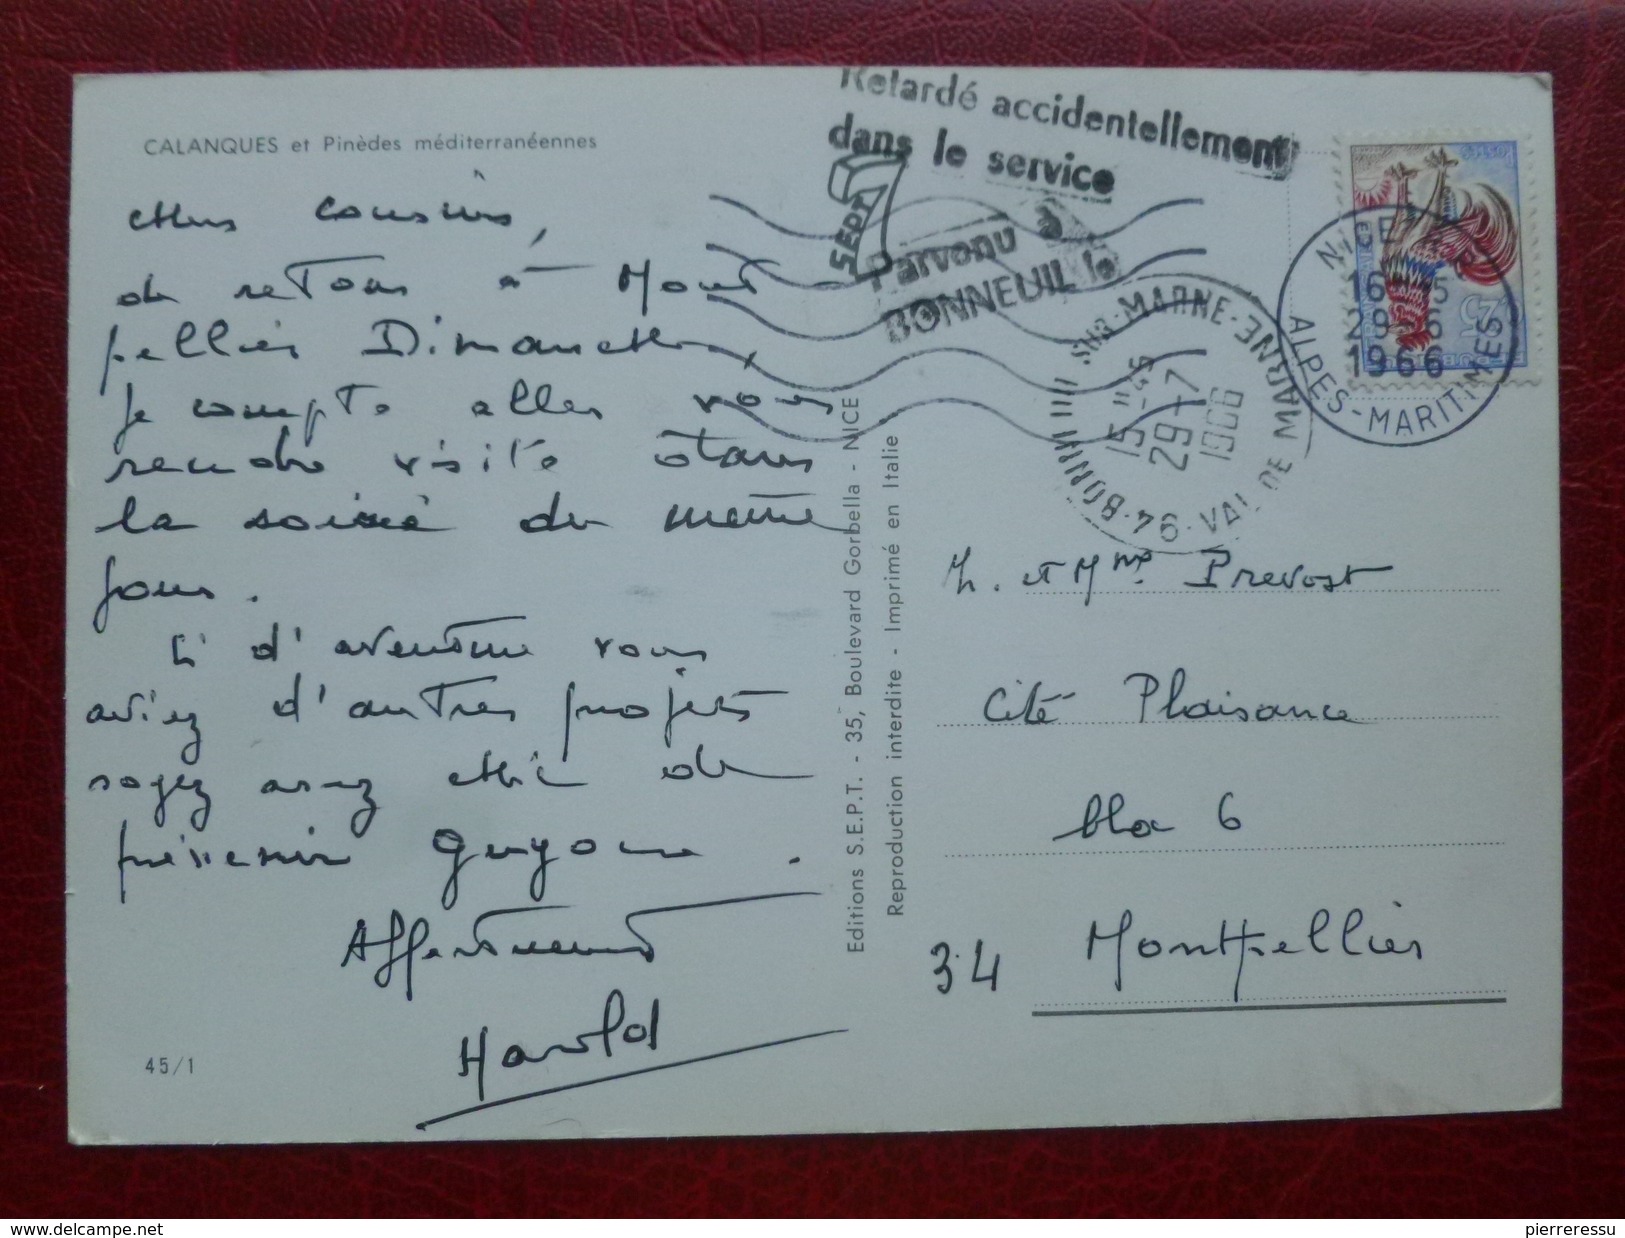 CALANQUES et Pinèdes méditerranéennes
Chers cousins,
de retour à Mont
pellier Dimanche,
je compte aller vous
rendre visite dans
la soirée du même
jour.
Si d'aventure vous
aviez d'autres projets
soyez assez chic de
prévenir Guyonne.
Affectueusement
Harold
45/1
Editions S.E.P.T. - 35, Boulevard Gorbella - NICE
Reproduction interdite - Imprimé en Italie
Retardé accidentellement
dans le service
Parvenu à
BONNEUIL le
7 SEPT
94 - BONN SUR-MARNE - VAL DE MARNE
15 H 45
29 - 7
1966
NICE
ALPES-MARITIMES
16
29 - 6
1966
POSTES
0,25
M. et Mme Prevost
Cité Plaisance
bloc 6
34 Montpellier
delcampe.net
pierreressu